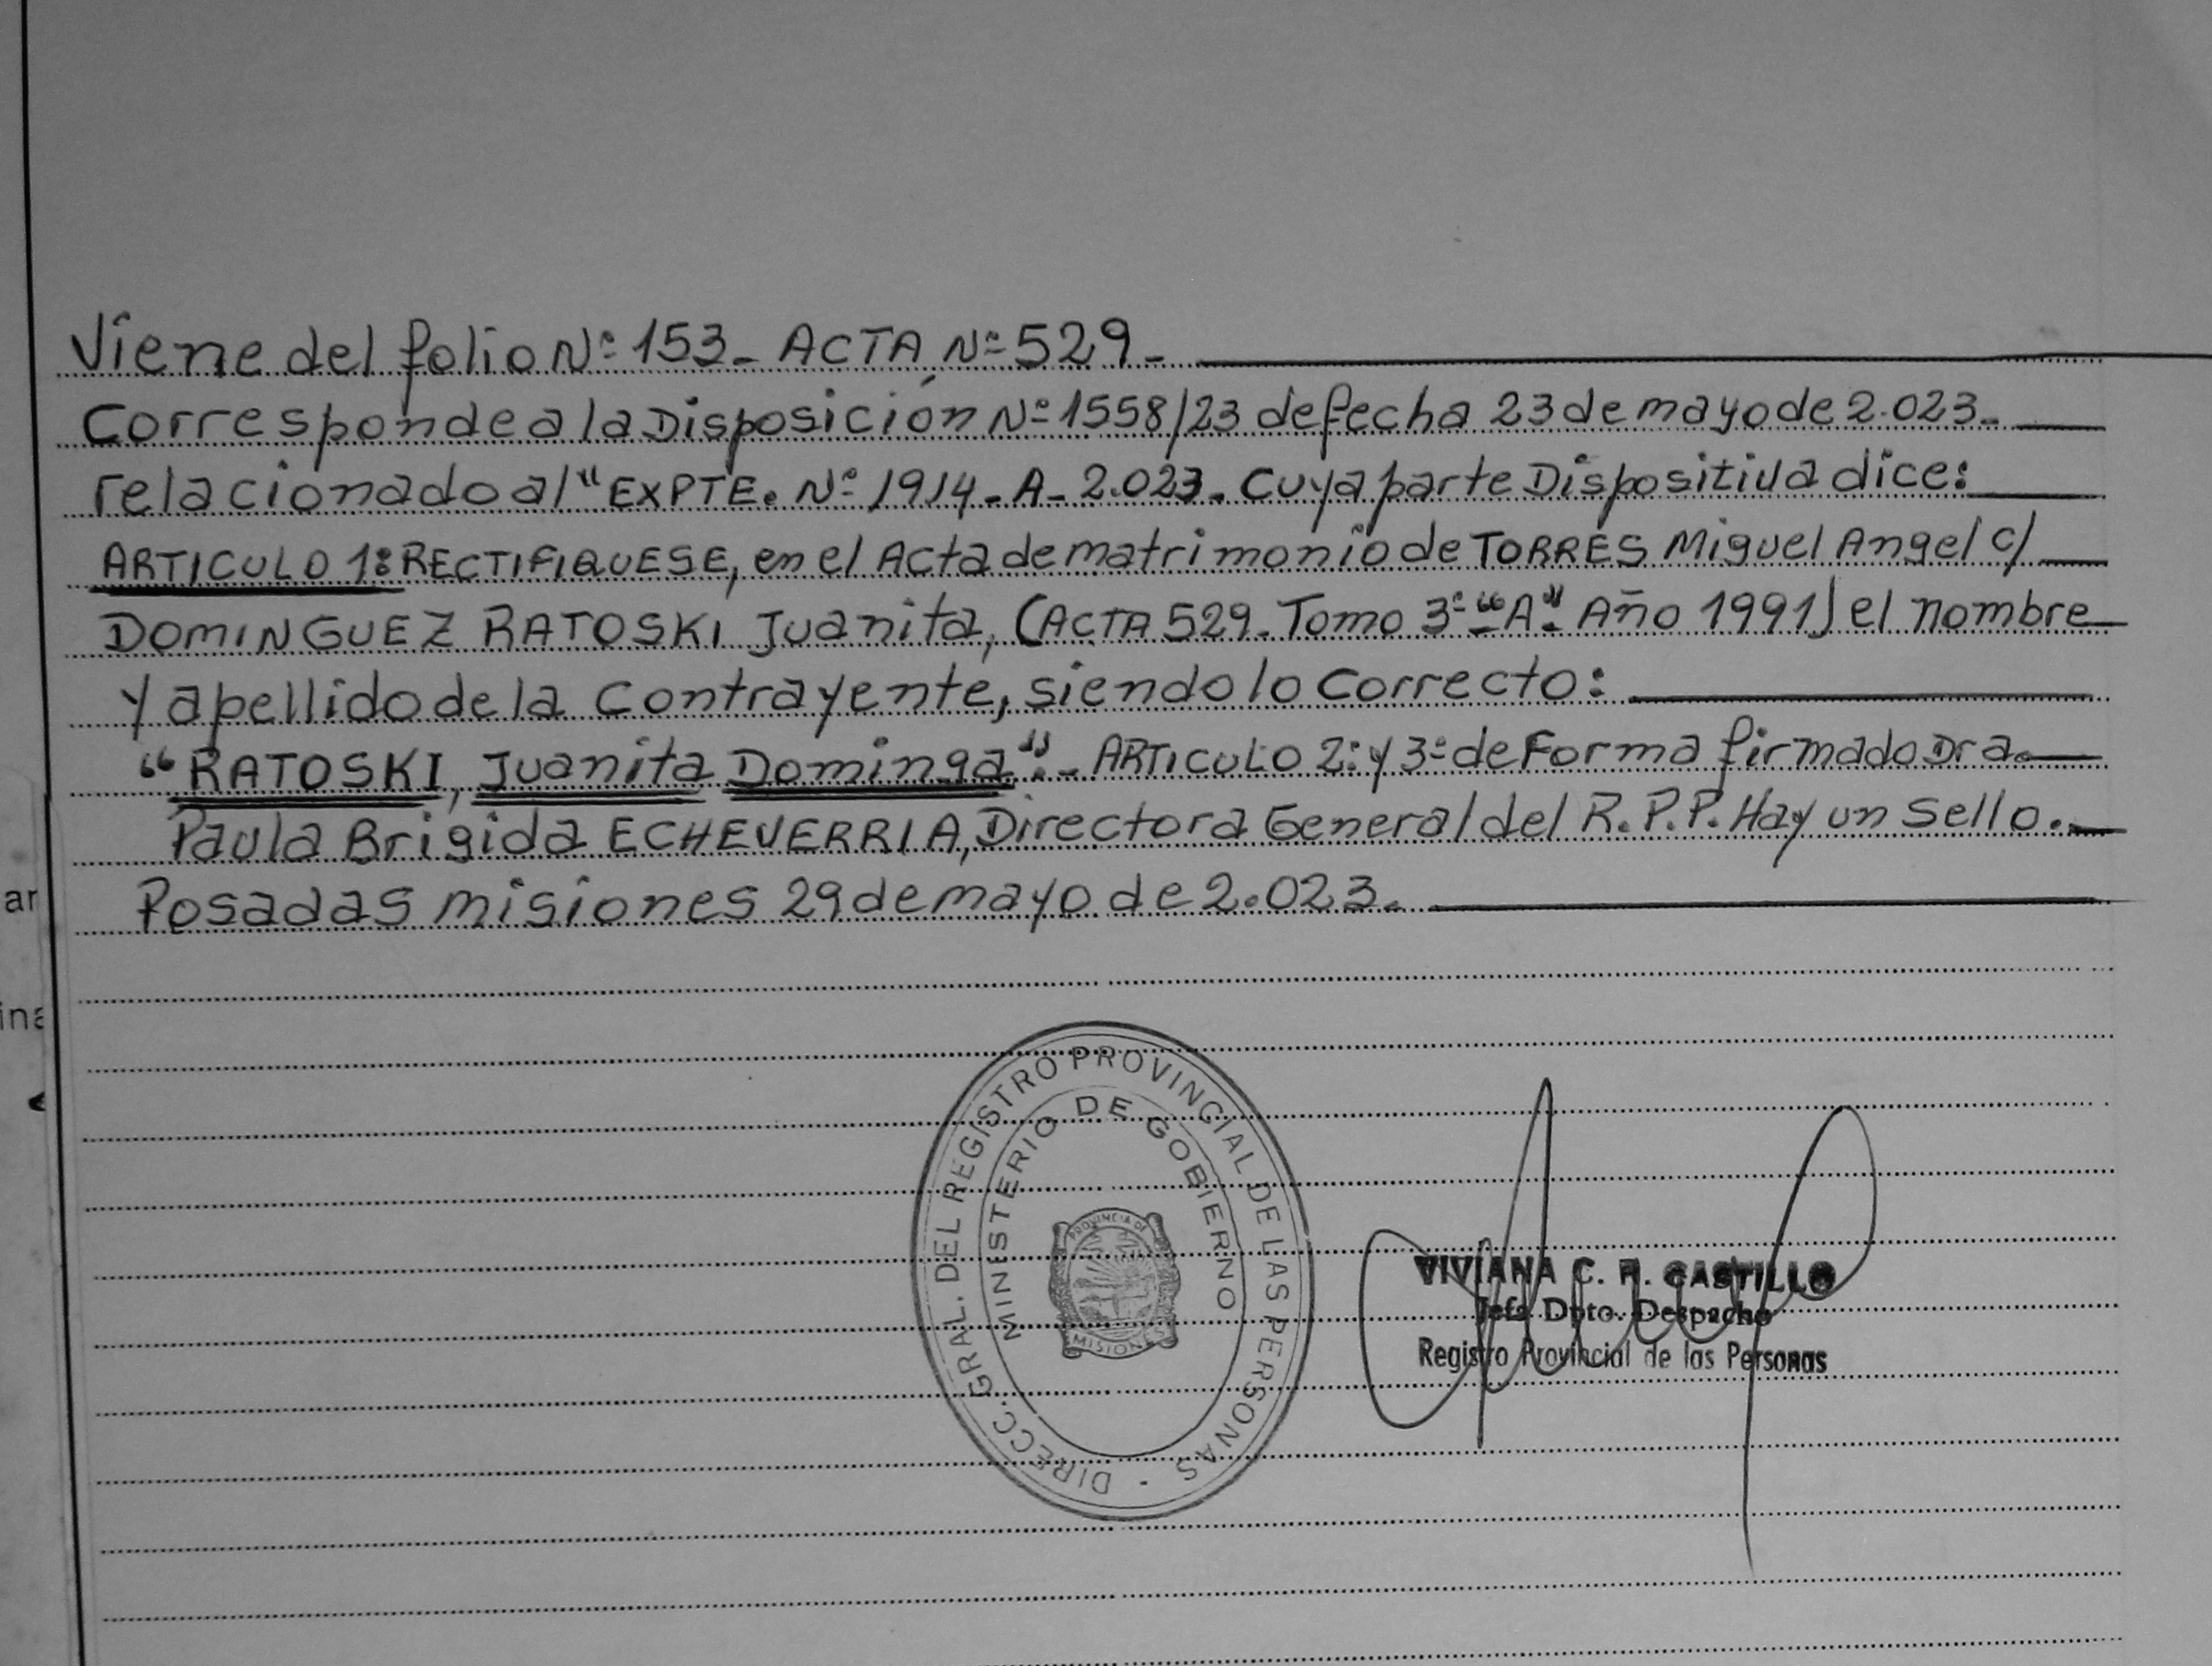 Viene del folio Nº 153- ACTA Nº 529-
Corresponde a la Disposición Nº 1558/23 de fecha 23 de mayo de 2.023-
relacionado al "EXPTE. Nº 1914-A-2.023. Cuya parte Dispositiva dice:
ARTICULO 1º: RECTIFIQUESE, en el Acta de matrimonio de TORRES Miguel Angel c/
DOMINGUEZ RATOSKI Juanita, (ACTA 529-Tomo 3º "A" Año 1991) el nombre
y apellido de la Contrayente, siendo lo Correcto:
"RATOSKI, Juanita Dominga".- ARTICULO 2º y 3º de Forma firmado Dra.
Paula Brigida ECHEVERRIA, Directora General del R.P.P. Hay un Sello.
Posadas misiones 29 de mayo de 2.023.
ar
ina
DIRECC. GRAL. DEL REGISTRO PROVINCIAL DE LAS PERSONAS -
MINISTERIO DE GOBIERNO
PROVINCIA DE
MISIONES
VIVIANA C. R. CASTILLO
Jefa Dpto. Despacho
Registro Provincial de las Personas